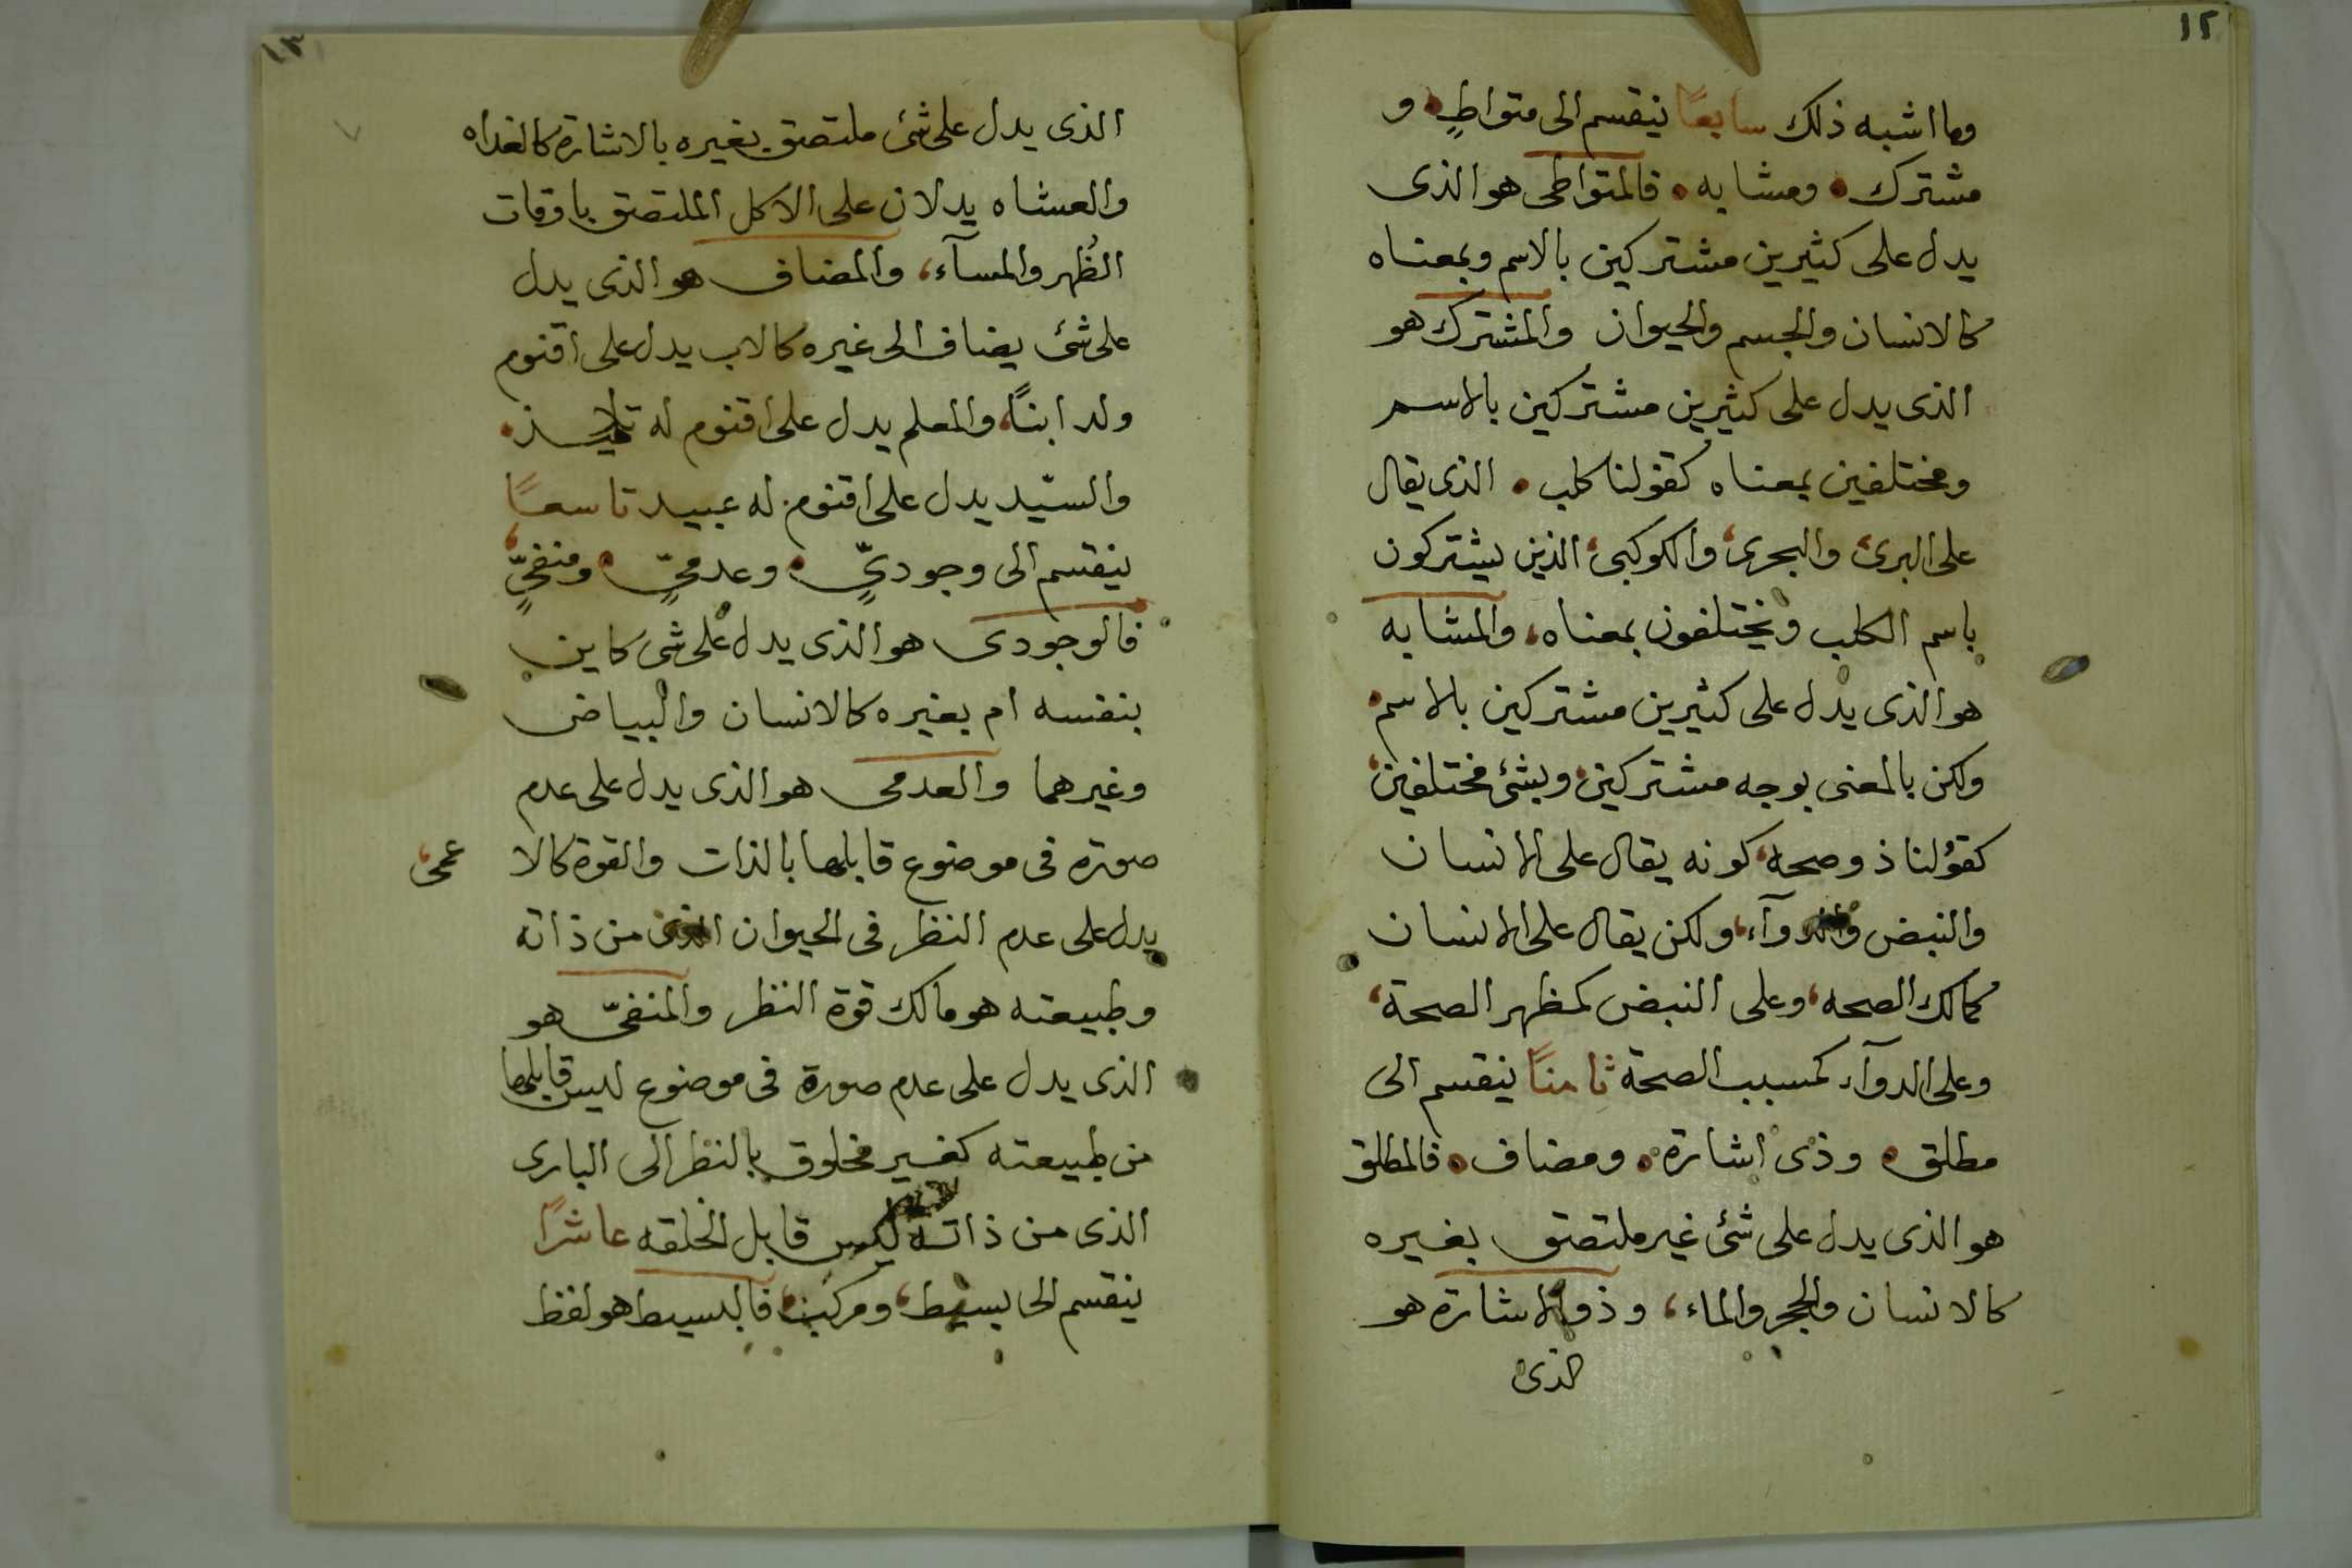 ١٢
وما اشبه ذلك سابعًا ينقسم الى متواطٍ و
مشترك ومشابه فالمتواطى هو الذى
يدل على كثيرين مشتركين بالاسم وبمعناه
كالانسان والجسم والحيوان والمشترك هو
الذى يدل على كثيرين مشتركين بالاسم
ومختلفين بمعناه كقولنا كلب الذى يقال
على البرى والبحرى والكوكبى الذين يشتركون
باسم الكلب ويختلفون بمعناه، والمشابه
هو الذى يدل على كثيرين مشتركين بالاسم
ولكن بالمعنى بوجه مشتركين وبشئ مختلفين
كقولنا ذو صحه كونه يقال على الانسان
والنبض والدوآء، ولكن يقال على الانسان
كمالك الصحه، وعلى النبض كمظهر الصحة،
وعلى الدوآء كمسبب الصحة ثامنًا ينقسم الى
مطلق وذى اشارة ومضاف فالمطلق
هو الذى يدل على شئ غير ملتصق بغيره
كالانسان والحجر والماء، وذو الاشارة هو
الذى
١٣
الذى يدل على شئ ملتصق بغيره بالاشارة كالغداه
والعشاه يدلان على الاكل الملتصق باوقات
الظُهر والمسآء، والمضاف هو الذى يدل
على شئ يضاف الى غيره كالاب يدل على اقنوم
ولد ابنًا، والمعلم يدل على اقنوم له تلاميذ
والسيّد يدل على اقنوم له عبيد تاسعًا
ينقسم الى وجوديٍّ وعدميٍّ ومنفيٍّ
فالوجودى هو الذى يدل على شى كاين
بنفسه ام بغيره كالانسان والبياض
وغيرهما والعدمى هو الذى يدل على عدم
صورة فى موضوع قابلها بالذات والقوة كالا عمى
يدل على عدم النظر فى الحيوان الذى من ذاته
وطبيعته هو مالك قوة النظر والمنفىّ هو
الذى يدل على عدم صورة فى موضوع ليس قابلها
من طبيعته كغير مخلوق بالنظر الى البارى
الذى من ذاته ليس قابل الخلقه عاشرًا
ينقسم الى بسيط، ومركب فالبسيط هو لفظ